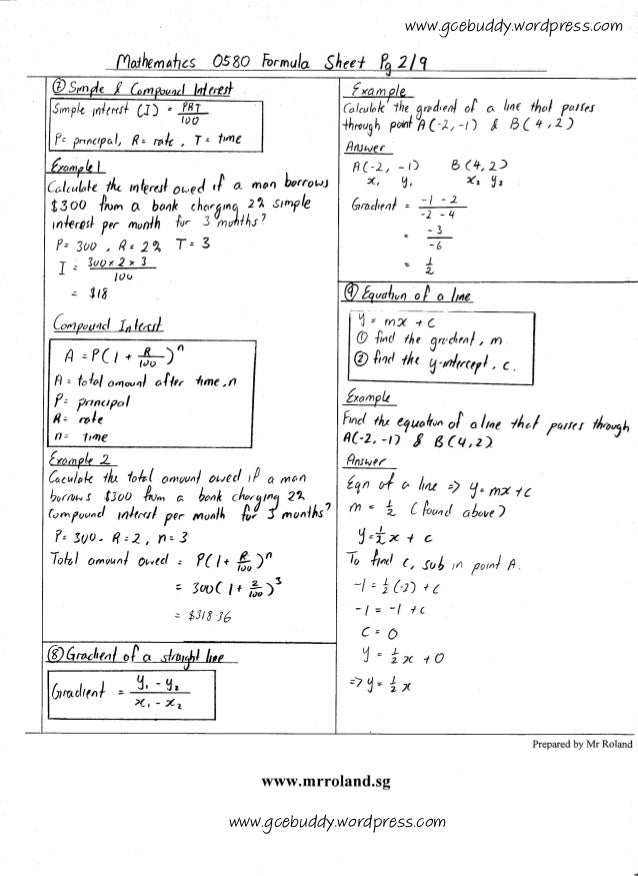 www.gcebuddy.wordpress.com
Mathematics 0580 Formula Sheet Pg 2/9
⑦ Simple & Compound Interest
Simple interest (I) = PRT/100
P= principal, R= rate, T= time
Example 1
Calculate the interest owed if a man borrows
$300 from a bank charging 2% simple
interest per month for 3 months?
P= 300, R= 2% T= 3
I = 300 x 2 x 3 / 100
= $18
Compound Interest
A = P(1 + R/100)ⁿ
A = total amount after time, n
P= principal
R= rate
n= time
Example 2
Caculate the total amount owed if a man
borrows $300 from a bank charging 2%
compound interest per month for 3 months?
P= 300, R=2, n=3
Total amount owed = P(1+ R/100)ⁿ
= 300(1+ 2/100)³
= $318.36
⑧ Gradient of a straight line
Gradient = y₁ - y₂ / x₁ - x₂
Example
Calculate the gradient of a line that passes
through point A(-2,-1) & B(4,2)
Answer
A(-2, -1) B(4,2)
x₁ y₁ x₂ y₂
Gradient = -1 - 2 / -2 - 4
= -3 / -6
= 1/2
⑨ Equation of a line
y = mx + c
① find the gradient, m
② find the y-intercept, c.
Example
Find the equation of a line that passes through
A(-2,-1) & B(4,2)
Answer
Eqn of a line => y = mx + c
m = 1/2 (found above)
y = 1/2 x + c
To find c, sub in point A.
-1 = 1/2 (-2) + c
-1 = -1 + c
c = 0
y = 1/2 x + 0
=> y = 1/2 x
Prepared by Mr Roland
www.mrroland.sg
www.gcebuddy.wordpress.com